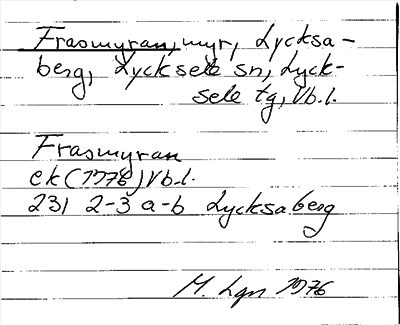 Frasmyran, myr, Lycksa-
berg, Lycksele sn, Lyck-
sele tg, Vb.l.
Frasmyran
ek (1976) Vb.l.
231 2-3 a-b Lycksaberg
M. Lgn 1976